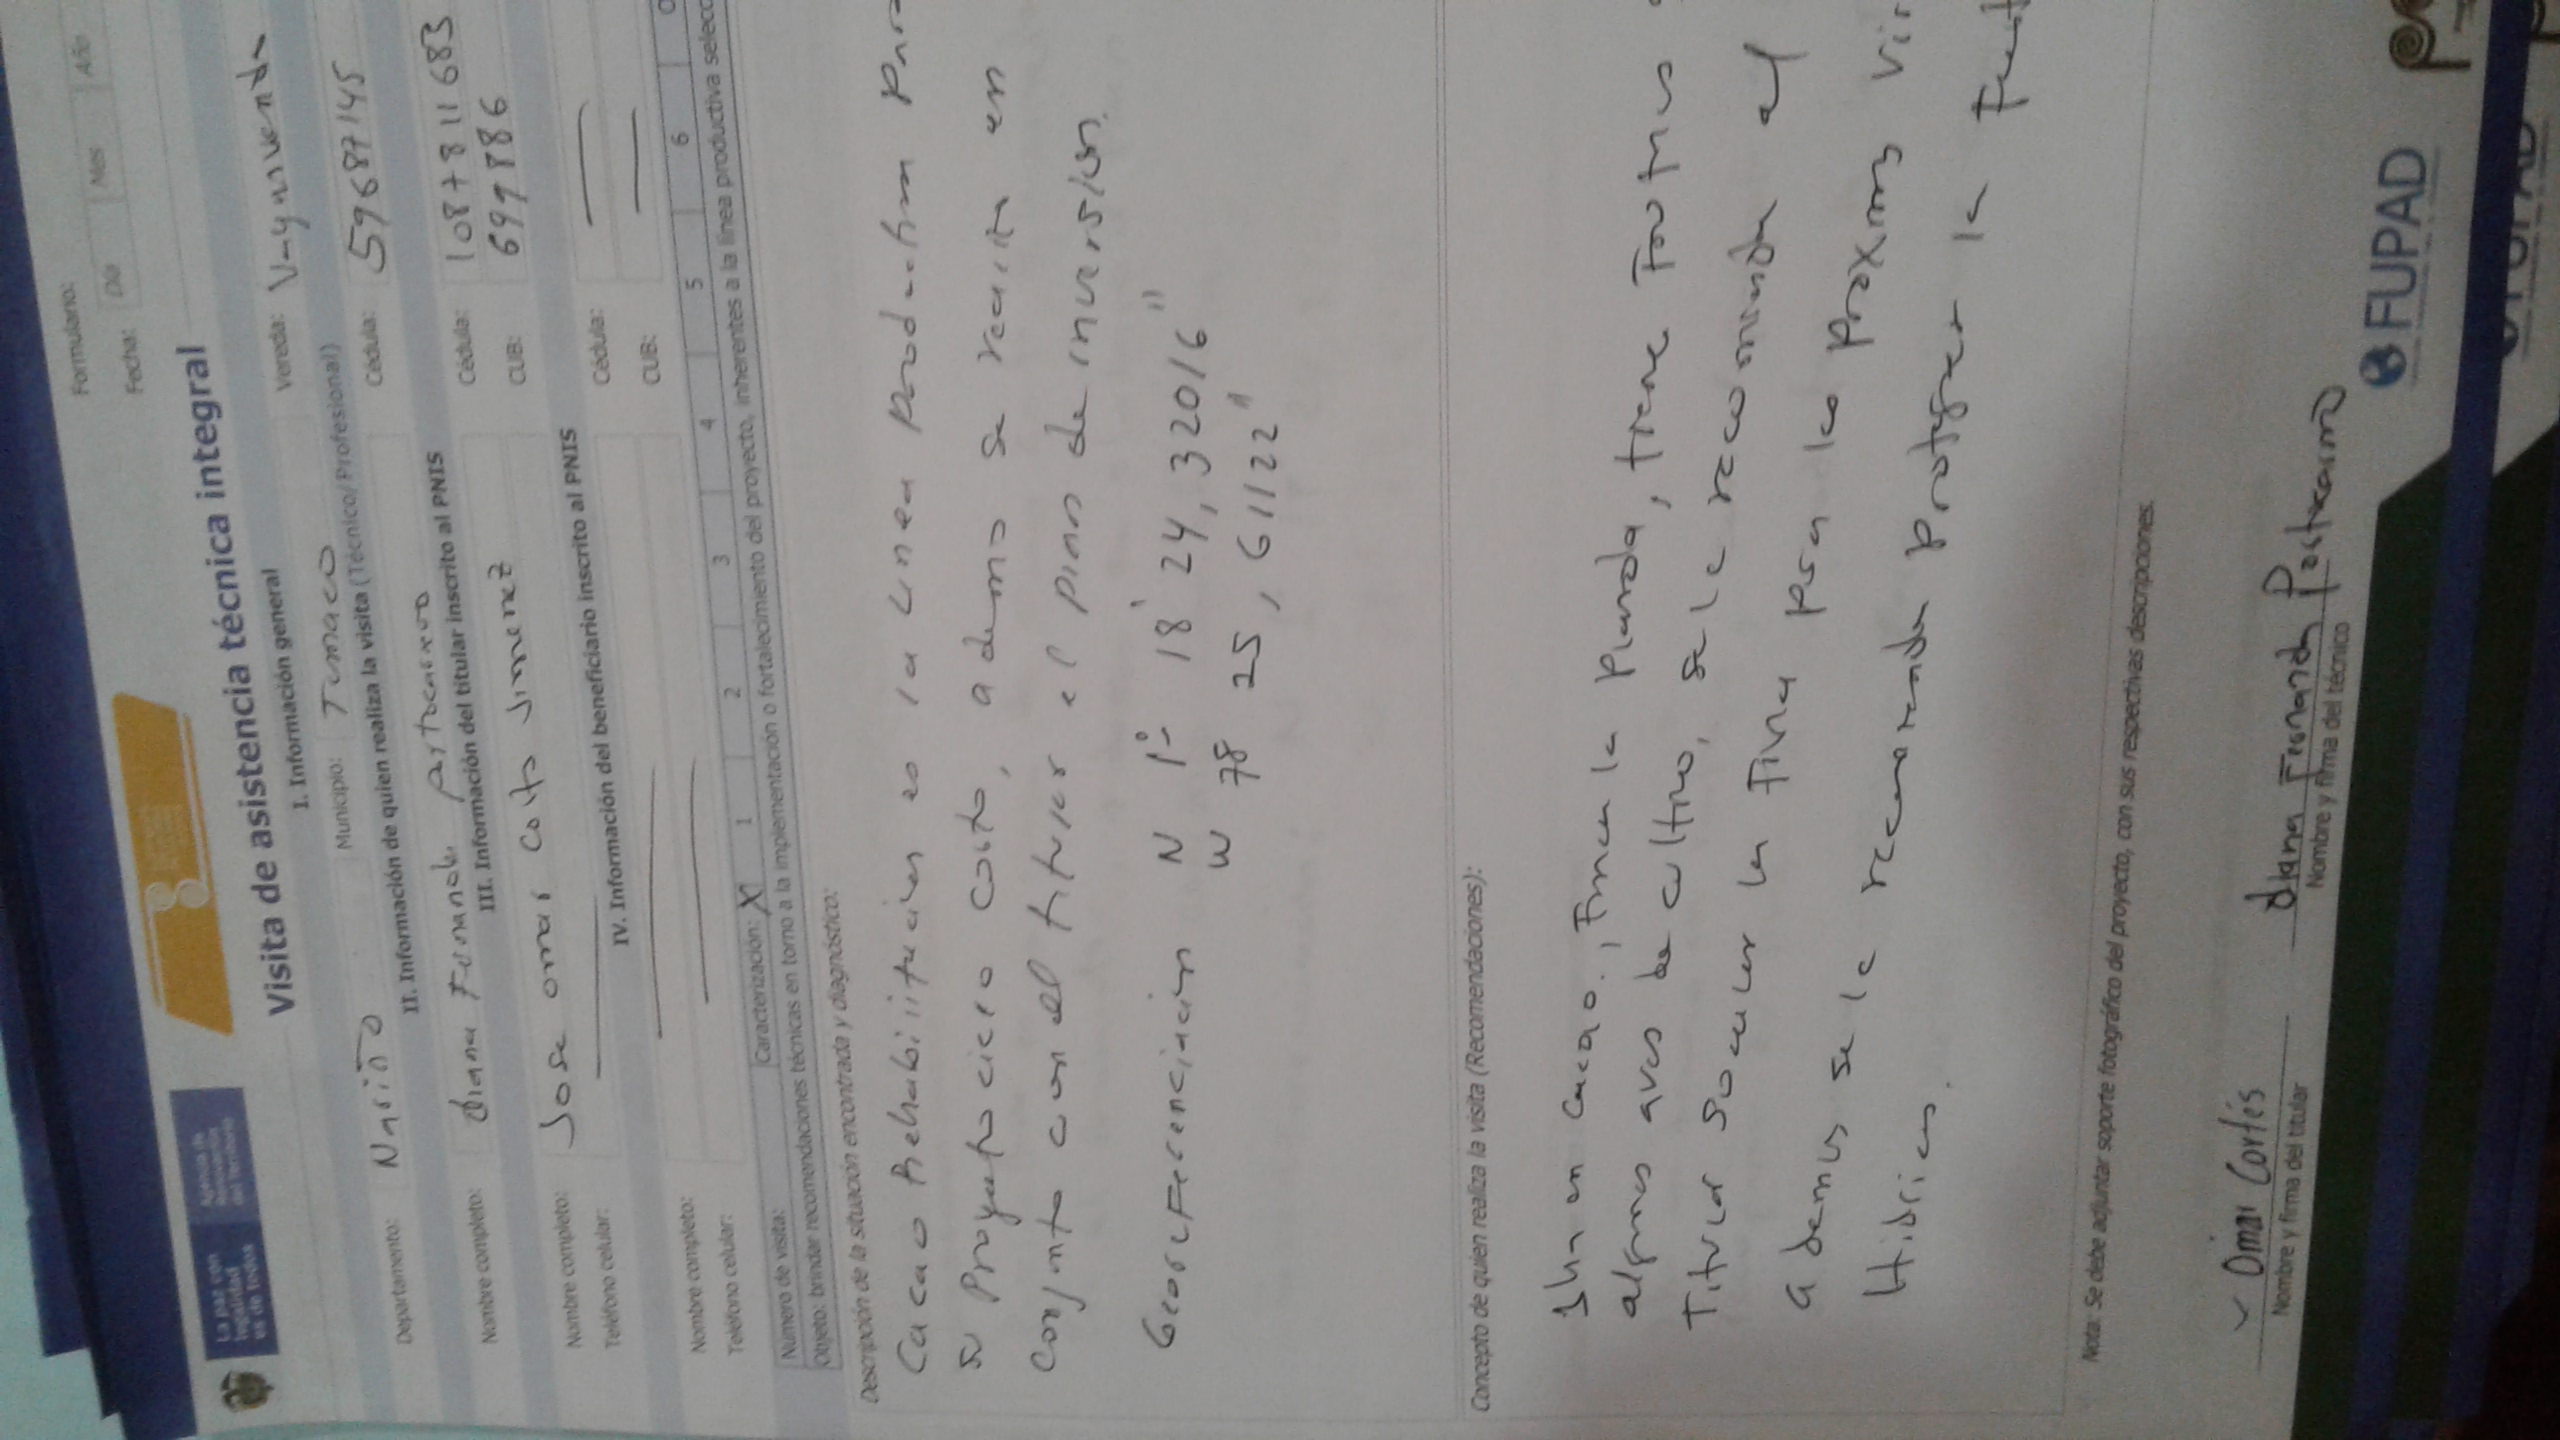 La paz con legalidad es de todos
Agencia de Renovación del Territorio
Formulario:
Fecha: Día Mes Año
Visita de asistencia técnica integral
I. Información general
Departamento: Nariño Municipio: Tumaco Vereda:
II. Información de quien realiza la visita (Técnico/Profesional)
Nombre completo: diana Fernanda Cédula: 59687145
III. Información del titular inscrito al PNIS
Nombre completo: Jose omar Jimenez Cédula: 1087811683
Teléfono celular: CUB: 699886
IV. Información del beneficiario inscrito al PNIS
Nombre completo: Cédula:
Teléfono celular: CUB:
Número de visita: Caracterización: X 1 2 3 4 5 6
Objeto: brindar recomendaciones técnicas en torno a la implementación o fortalecimiento del proyecto, inherentes a la línea productiva selecc
Descripción de la situación encontrada y diagnóstico:
Cacao Rehabilitacion es la Linea Productiva para
su Proyecto ciclo corto, ademas se realiza en
conjunto con el titular el plan de inversion.
Georeferenciacion N 1° 18' 24,32016"
W 78 25, 61122"
Concepto de quien realiza la visita (Recomendaciones):
1ha en cacao, Finca la Planada, tiene
algunas de cultivo, se le recomienda al
Titular la Finca para las Proximas
ademas se le recomienda proteger la
Hidricas.
Nota: Se debe adjuntar soporte fotográfico del proyecto, con sus respectivas descripciones.
Omar Cortés diana Fernanda Portocarrero
Nombre y firma del titular Nombre y firma del técnico
FUPAD